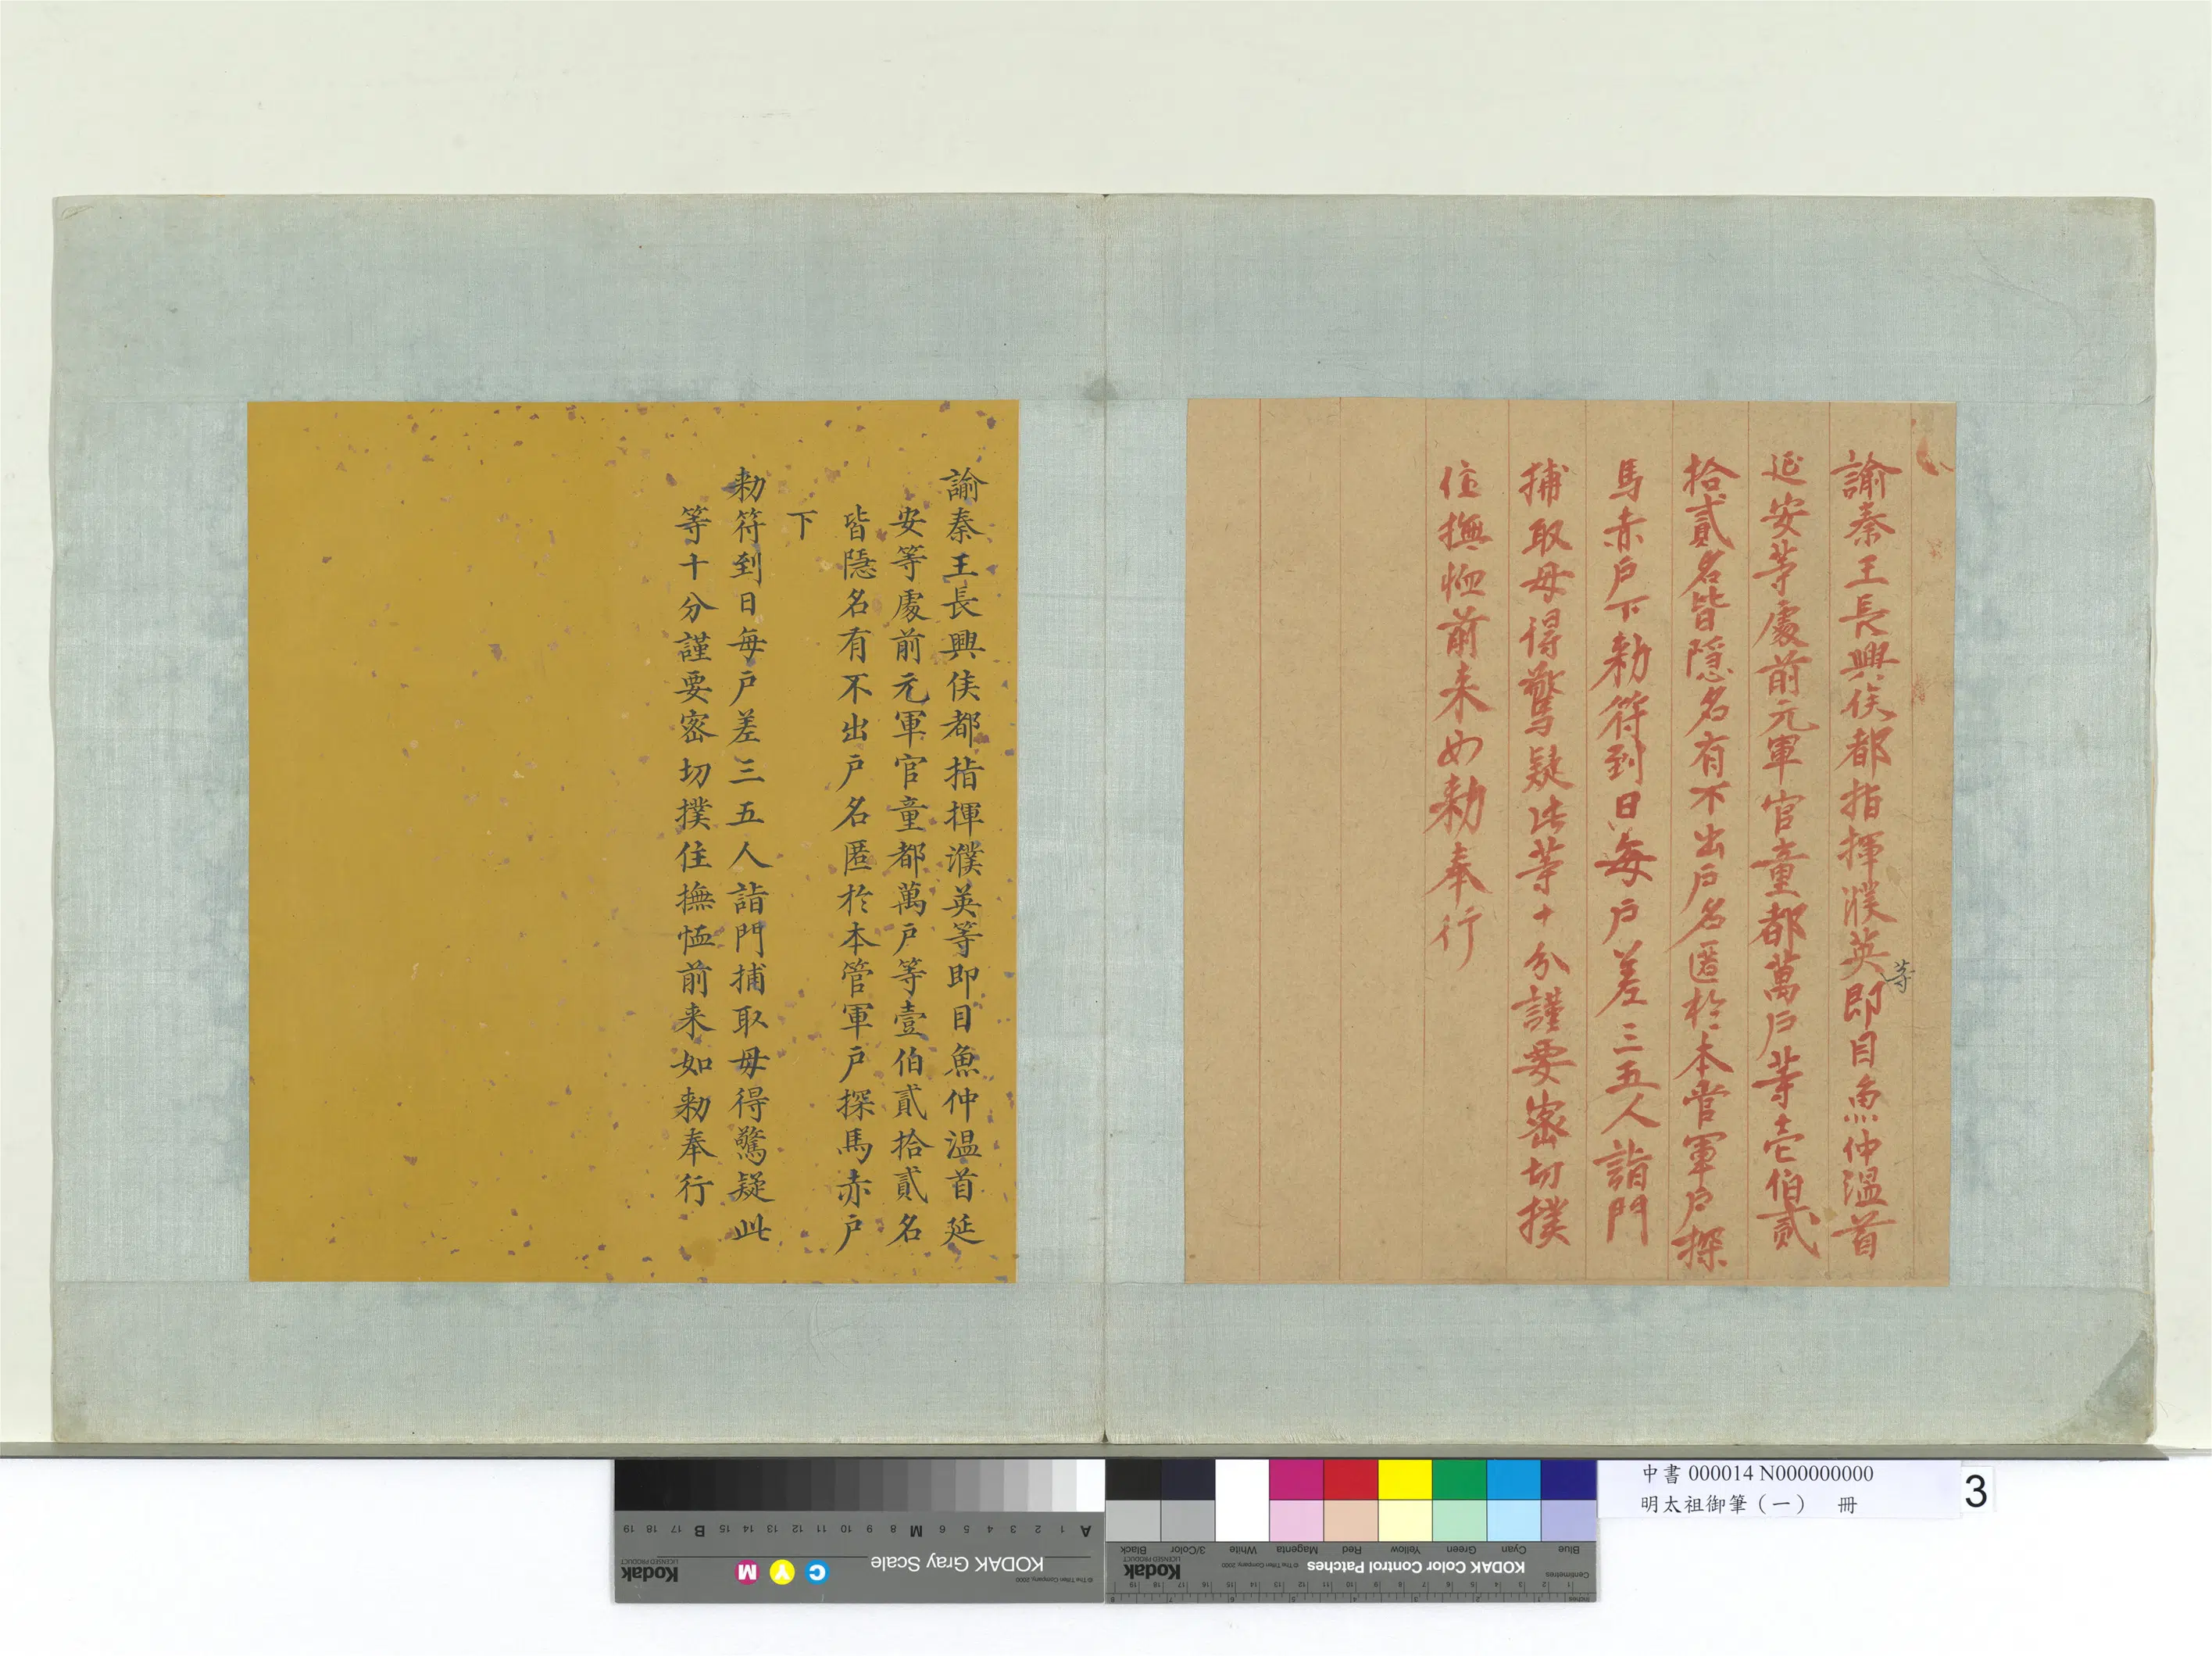 諭秦王長興侯都指揮濮英等即目魚仲溫首
延安等處前元軍官童都萬戶等壱伯貳
拾貳名皆隱名有不出戶名匿於本管軍戶探
馬赤戶下勑符到日每戶差三五人詣門
捕取毋得驚疑此等十分謹要密切撲
住撫恤前来如勑奉行
諭秦王長興侯都指揮濮英等即目魚仲溫首延
安等處前元軍官童都萬戶等壹伯貳拾貳名
皆隱名有不出戶名匿於本管軍戶探馬赤戶
下
勑符到日每戶差三五人詣門捕取毋得驚疑此
等十分謹要密切撲住撫恤前来如勑奉行
中書 000014 N000000000
明太祖御筆（一） 冊
3
A 1 2 3 4 5 6 M 8 9 10 11 12 13 14 15 B 17 18 19
KODAK Gray Scale
© The Tiffen Company, 2000
C Y M
Kodak
LICENSED PRODUCT
Blue Cyan Green Yellow Red Magenta White 3/Color Black
KODAK Color Control Patches
© The Tiffen Company, 2000
Kodak
LICENSED PRODUCT
Centimetres
Inches